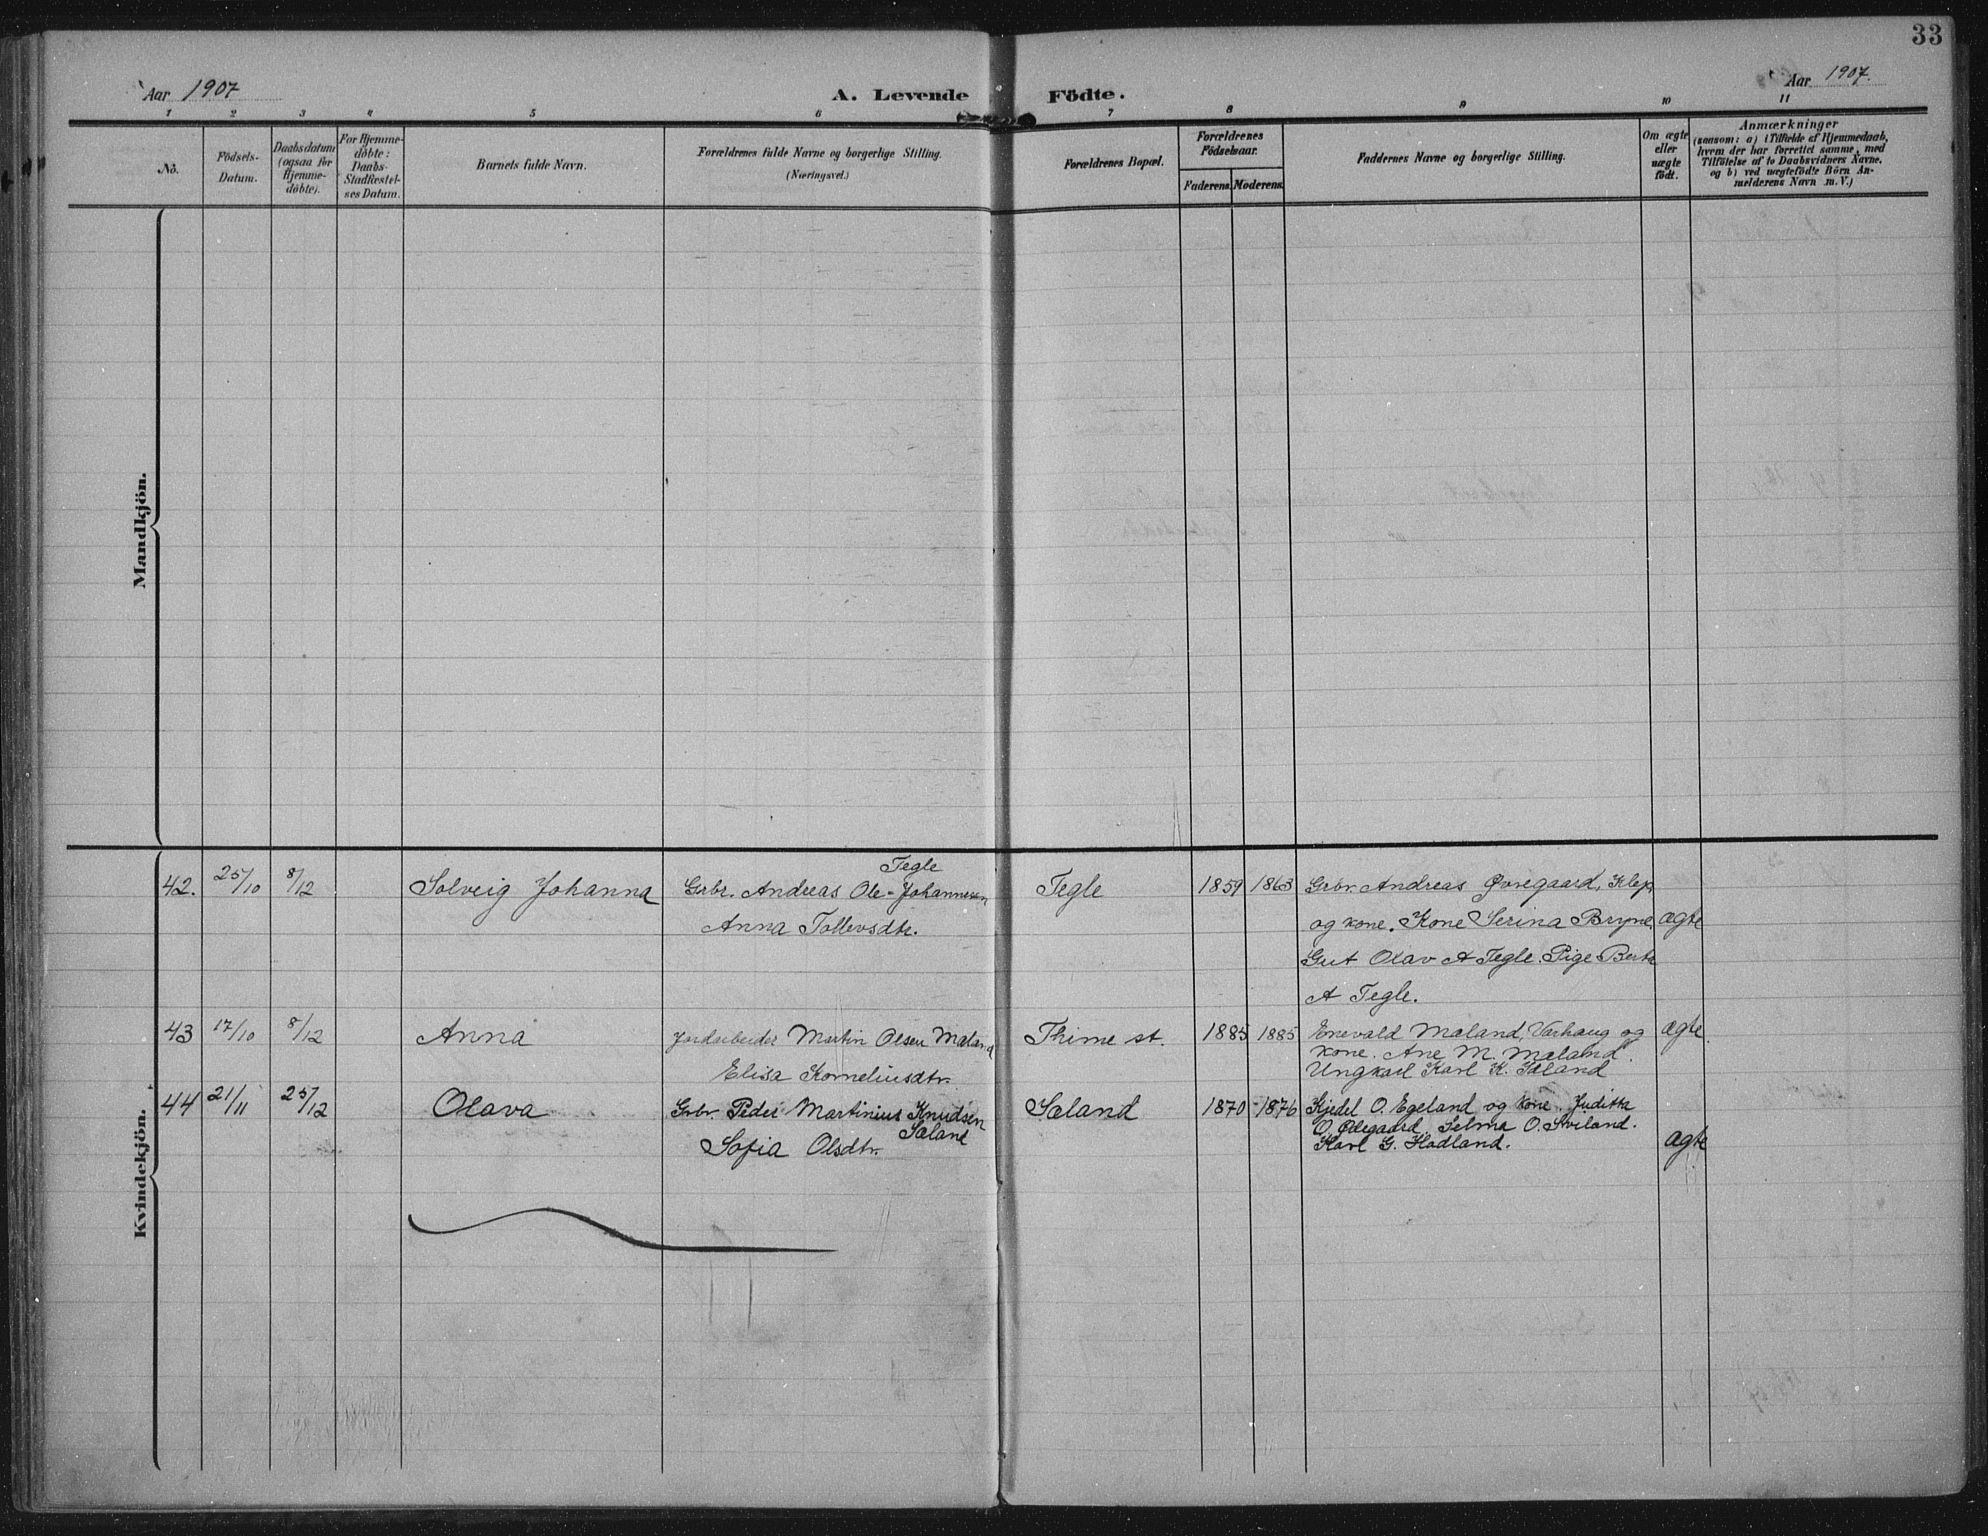 33
Aar 1907
A. Levende Födte.
Aar 1907.
1 2 3 4 5 6 7 8 9 10 11
No.
Födsels-
Datum.
Daabsdatum
(ogsaa for
Hjemme-
döbte).
For Hjemme-
döbte:
Daabs-
Stadfæstel-
ses Datum.
Barnets fulde Navn.
Forældrenes fulde Navne og borgerlige Stilling.
(Næringsvei.)
Forældrenes Bopæl.
Forældrenes
Födselsaar.
Faderens. Moderens.
Faddernes Navne og borgerlige Stilling.
Om ægte
eller
uægte
födt.
Anmærkninger
(saasom: a) i Tilfælde af Hjemmedaab,
hvem der har forrettet samme, med
Tilföielse af to Daabsvidners Navne,
og b) ved uægtefödte Börn An-
melderens Navn m. V.)
Mandkjön.
Kvindekjön.
42. 25/10 8/12 Solveig Johanna
Tegle
Grbr. Andreas Ole-Johannesen
Anna Tollevsdtr.
Tegle 1859 1863
Grbr. Andreas Øvregaard, Klep
og kone. Kone Serina Bryne,
Gut Olav A Tegle. Pige Berta
A Tegle.
ægte
43 17/10 8/12 Anna
Jordarbeider Martin Olsen Mæland
Elisa Korneliusdtr.
Thime st. 1885 1885
Enevald Mæland, Varhaug og
kone. Ane M. Mæland.
Ungkarl Karl K. Taland
ægte.
44 21/11 25/12 Olava
Grbr. Peder Martinius Knudsen
Sæland
Sofia Olsdtr.
Sæland 1870 1876
Kjedel O. Egeland og kone. Juditta
O. Ødegaard. Selma O. Sviland.
Karl G. Hadland.
ægte